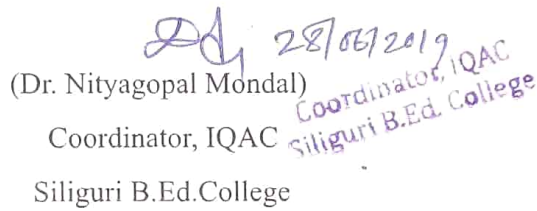 28/06/2019
(Dr. Nityagopal Mondal)
Coordinator, IQAC
Siliguri B.Ed.College
Coordinator, IQAC
Siliguri B.Ed. College